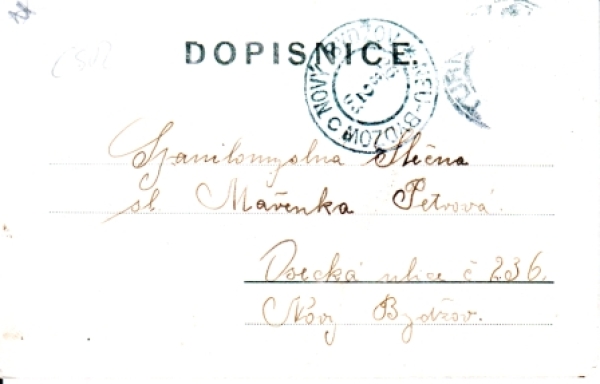 DOPISNICE.
NOVÝ BYDŽOV NEU-BYDZOW
slečna
sl. Mařenka Petrová
ulice č 236.
Nový Bydžov.